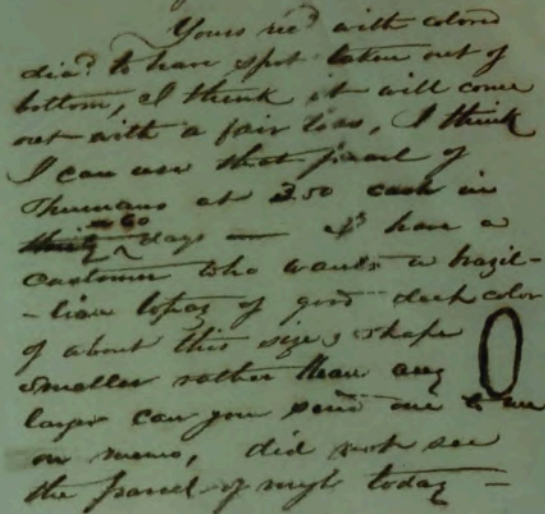 Yours rec'd with colored
dia'd to have spot taken out of
bottom, I think it will come
out with a fair loss, I think
I can use that parcel of
at 3.50 cash in
60
thirty days — I have a
customer who wants a brazil-
-lian topaz of good dark color
of about this size & shape
smaller rather than any
larger can you send one to me
on memo, did not see
the parcel of today —